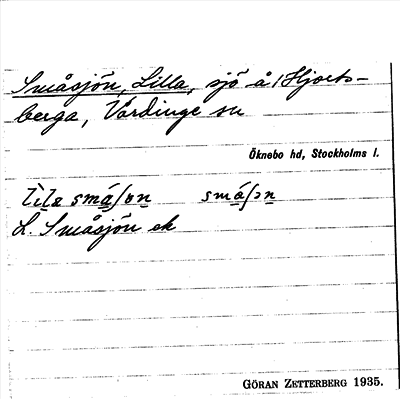 Småsjön, Lilla, sjö å Hjorts-
berga, Vårdinge sn
Öknebo hd, Stockholms l.
L. Småsjön ek
GÖRAN ZETTERBERG 1935.